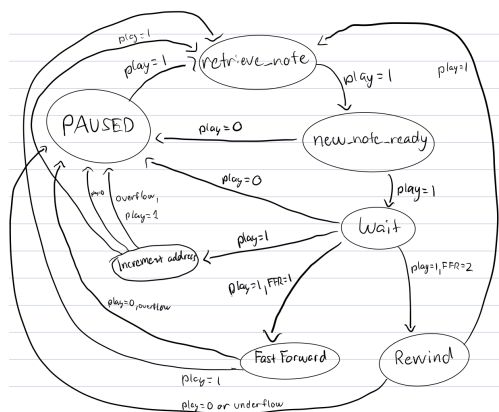 play=1
play=1
play=1
retrieve_note
play=1
play=1
PAUSED
play=0
new_note_ready
play=0
play=1
play=0
overflow,
play=1
Wait
play=1
Increment address
play=1, FFR=1
play=1, FFR=2
play=0, overflow
Fast Forward
Rewind
play=1
play=0 or underflow